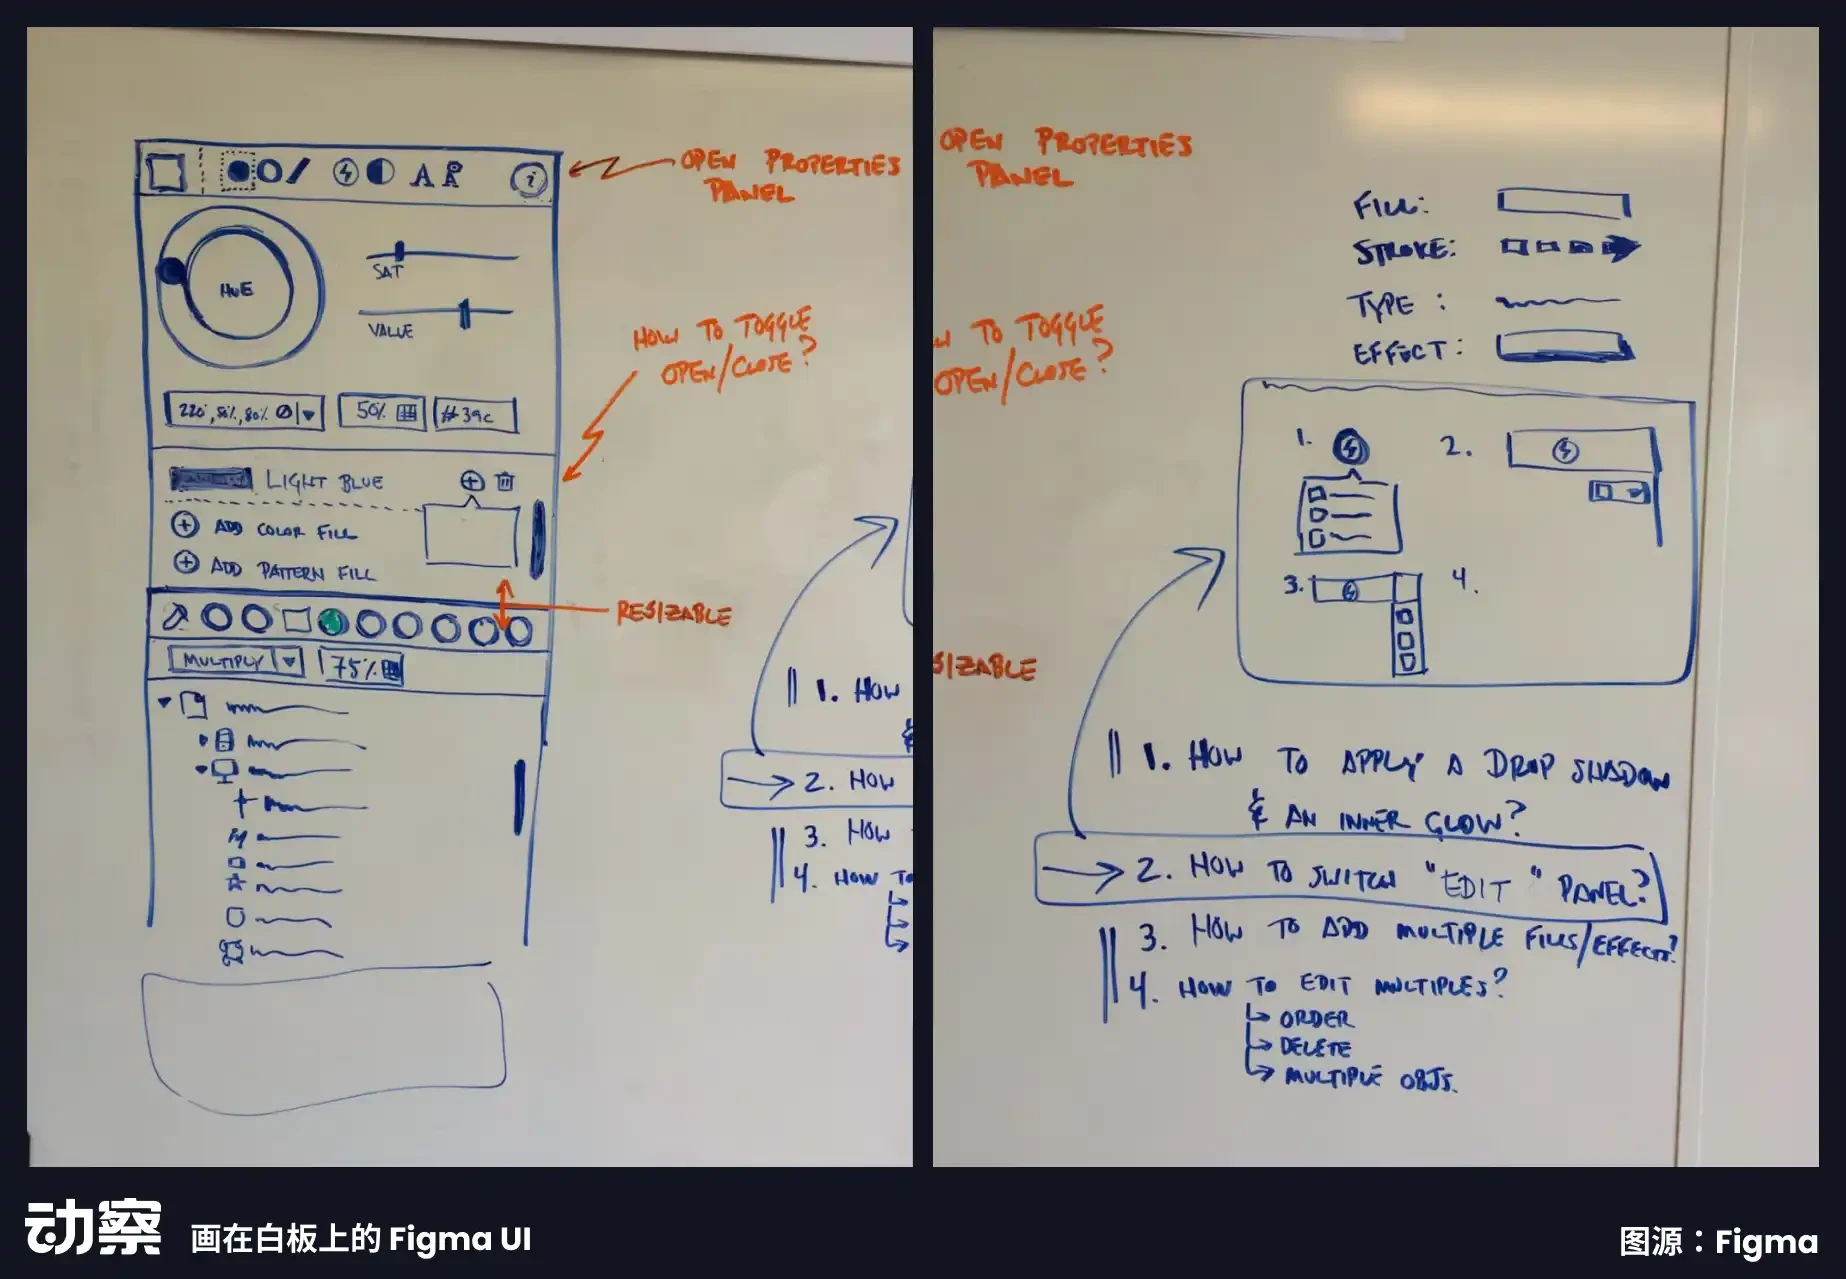 A A i
OPEN PROPERTIES
PANEL
HUE
SAT
VALUE
HOW TO TOGGLE
OPEN/CLOSE?
50%
#39c
LIGHT BLUE
ADD COLOR FILL
ADD PATTERN FILL
RESIZABLE
MULTIPLY
75%
1. HOW
&
2. HOW
3. HOW
4. HOW TO
OPEN PROPERTIES
PANEL
W TO TOGGLE
OPEN/CLOSE?
SIZABLE
FILL:
STROKE:
TYPE :
EFFECT:
1.
2.
3.
4.
1. HOW TO APPLY A DROP SHADOW
& AN INNER GLOW?
2. HOW TO SWITCH "EDIT" PANEL?
3. HOW TO ADD MULTIPLE FILLS/EFFECTS?
4. HOW TO EDIT MULTIPLES?
ORDER
DELETE
MULTIPLE OBJS.
动察 画在白板上的 Figma UI
图源：Figma